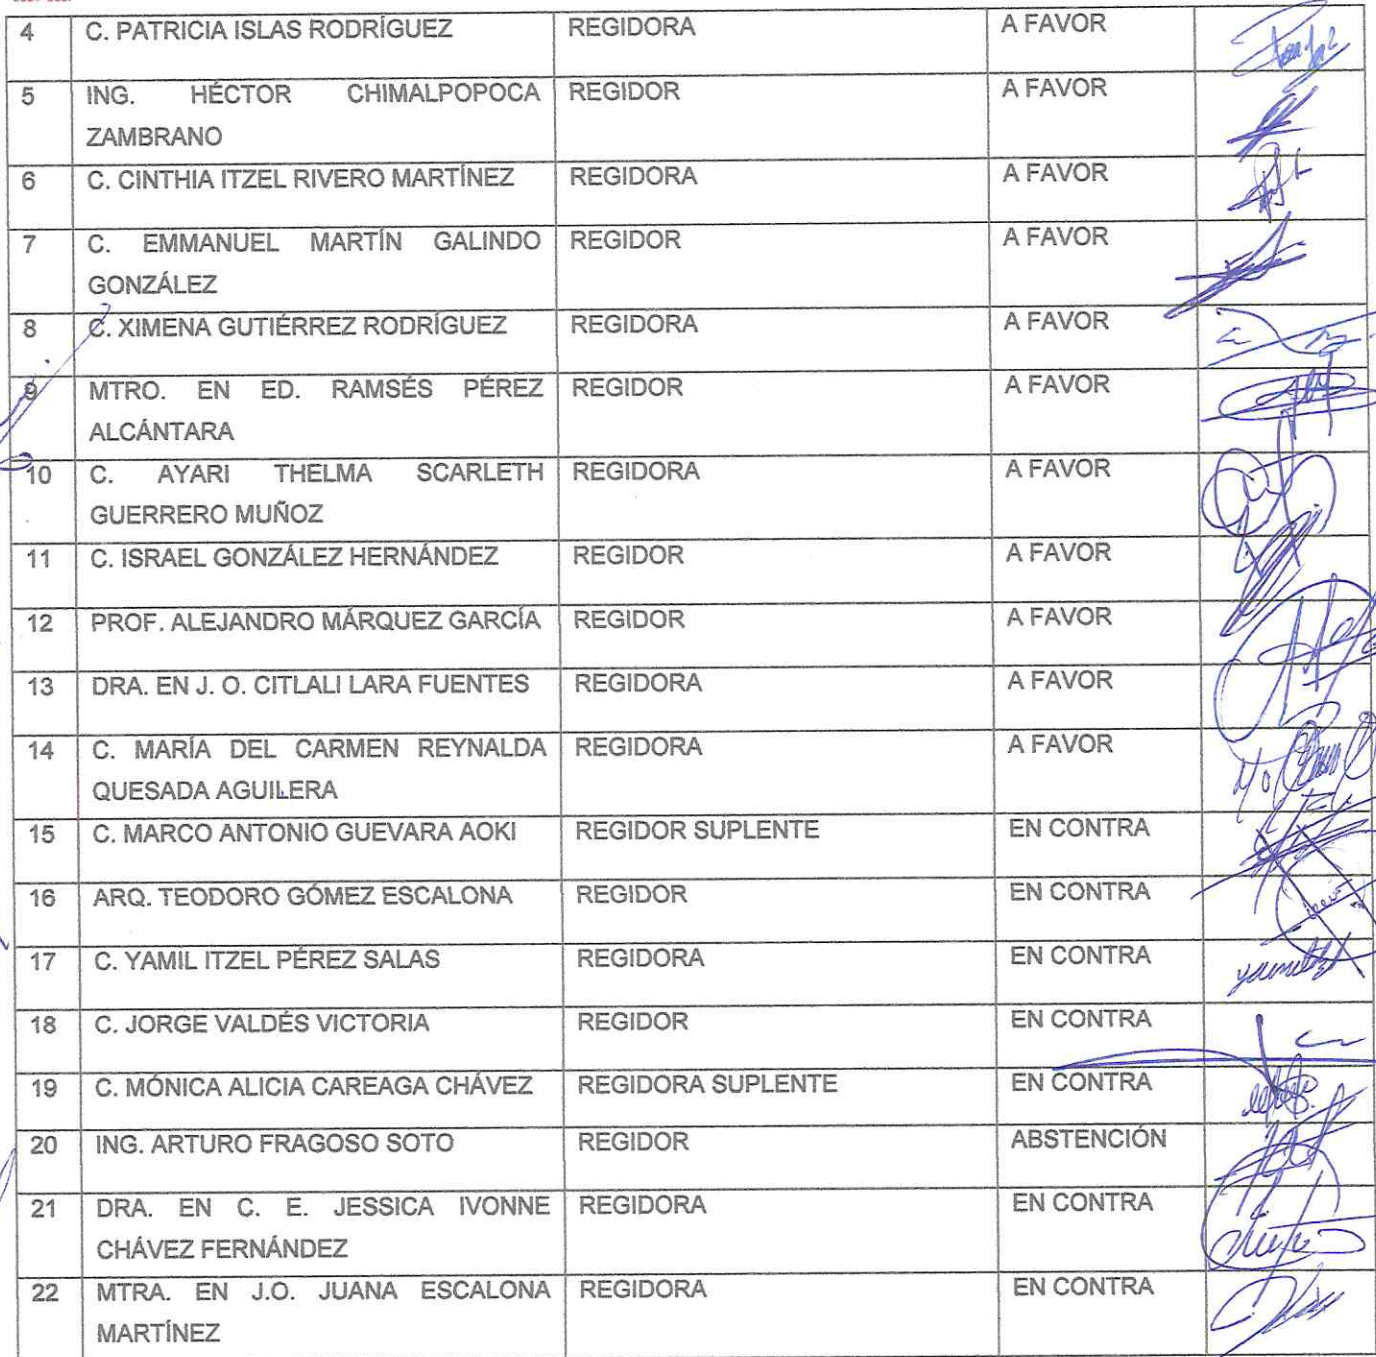 4 C. PATRICIA ISLAS RODRÍGUEZ REGIDORA A FAVOR
5 ING. HÉCTOR CHIMALPOPOCA REGIDOR A FAVOR
ZAMBRANO
6 C. CINTHIA ITZEL RIVERO MARTÍNEZ REGIDORA A FAVOR
7 C. EMMANUEL MARTÍN GALINDO REGIDOR A FAVOR
GONZÁLEZ
8 C. XIMENA GUTIÉRREZ RODRÍGUEZ REGIDORA A FAVOR
9 MTRO. EN ED. RAMSÉS PÉREZ REGIDOR A FAVOR
ALCÁNTARA
10 C. AYARI THELMA SCARLETH REGIDORA A FAVOR
GUERRERO MUÑOZ
11 C. ISRAEL GONZÁLEZ HERNÁNDEZ REGIDOR A FAVOR
12 PROF. ALEJANDRO MÁRQUEZ GARCÍA REGIDOR A FAVOR
13 DRA. EN J. O. CITLALI LARA FUENTES REGIDORA A FAVOR
14 C. MARÍA DEL CARMEN REYNALDA REGIDORA A FAVOR
QUESADA AGUILERA
15 C. MARCO ANTONIO GUEVARA AOKI REGIDOR SUPLENTE EN CONTRA
16 ARQ. TEODORO GÓMEZ ESCALONA REGIDOR EN CONTRA
17 C. YAMIL ITZEL PÉREZ SALAS REGIDORA EN CONTRA
18 C. JORGE VALDÉS VICTORIA REGIDOR EN CONTRA
19 C. MÓNICA ALICIA CAREAGA CHÁVEZ REGIDORA SUPLENTE EN CONTRA
20 ING. ARTURO FRAGOSO SOTO REGIDOR ABSTENCIÓN
21 DRA. EN C. E. JESSICA IVONNE REGIDORA EN CONTRA
CHÁVEZ FERNÁNDEZ
22 MTRA. EN J.O. JUANA ESCALONA REGIDORA EN CONTRA
MARTÍNEZ